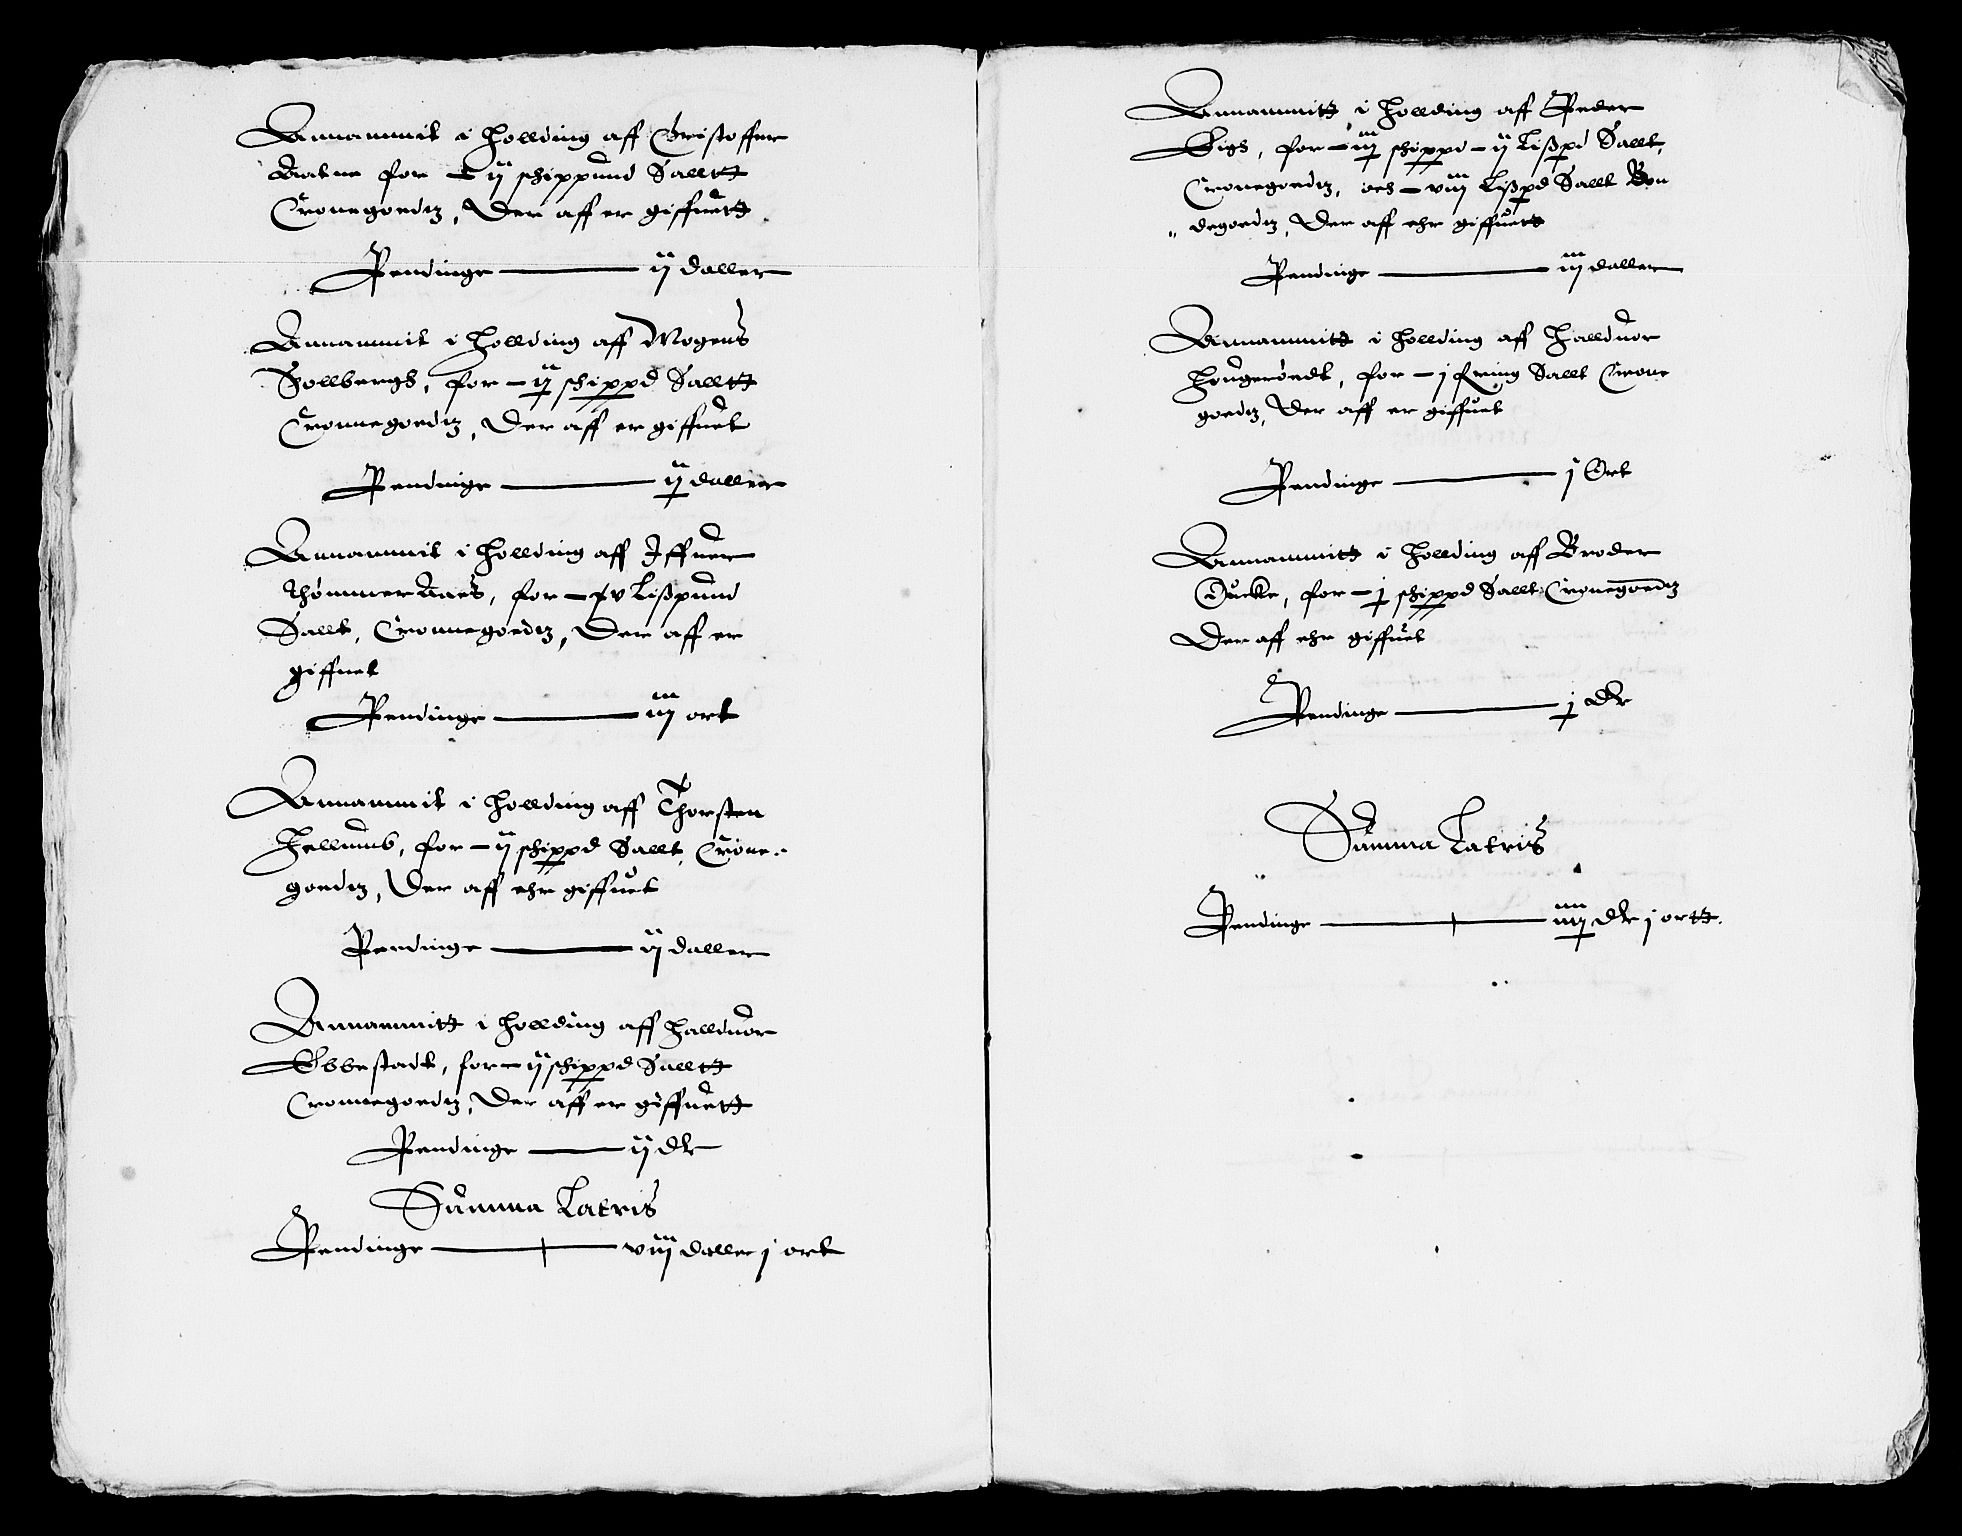 Annammit i holding aff Christoffer
Aatne for - ij schippund Salltt
Cronegordtz, Der aff er giffuett
Pendinge ij daller
Annammit i holding aff Mogens
Sollbergh, for - ij schippd Salltt
Cronnegordtz, Der aff er giffuet
Pendinge ij daller
Annammit i holding aff Iffuer
Thommer Aaes, for - xv Lißpund
Sallt, Cronnegordtz, Der aff er
giffuet
Pendinge iij ort
Annammit i holding aff Thorsten
Hellumb, for - ij schippd Sallt, Crone
gordtz, Der aff ehr giffuet
Pendinge ij daller
Annammitt i holding aff Halduor
Ebbestadt, for - ij schippd Salltt
Cronnegordtz, Der aff er giffuett
Pendinge ij dlr
Summa Latris
Pendinge viij daller j ort
Annammitt i holding aff Peder
for - iij schippd - ij Lißpd Sallt,
Cronegordtz, och - viij Lißpd Sallt Bon
degordtz, Der aff ehr giffuett
Pendinge iij daller
Annammitt i holding aff Halduor
Hougerördt, for - j fring Sallt Crone
gordtz, Der aff er giffuet
Pendinge j Ort
Annammitt i holding aff Broder
Ducke, for - j schippd Sallt Cronegordtz
Der aff ehr giffuet
Pendinge j dlr
Summa Latris
Pendinge iiij dlr j ortt.